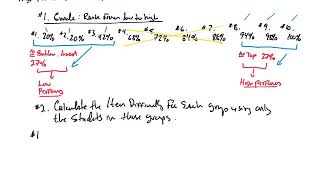 #1. Grade: Rank from low to high
#1. 20% #2. 20% #3. 42% #4. 68% #5. 72% #6. 84% #7. 86% #8. 94% #9. 98% #10. 100%
Bottom
27%
Low
Performers
Top 27%
High Performers
#2. Calculate the Item Difficulty for Each group using only
the Students in those groups.
#1